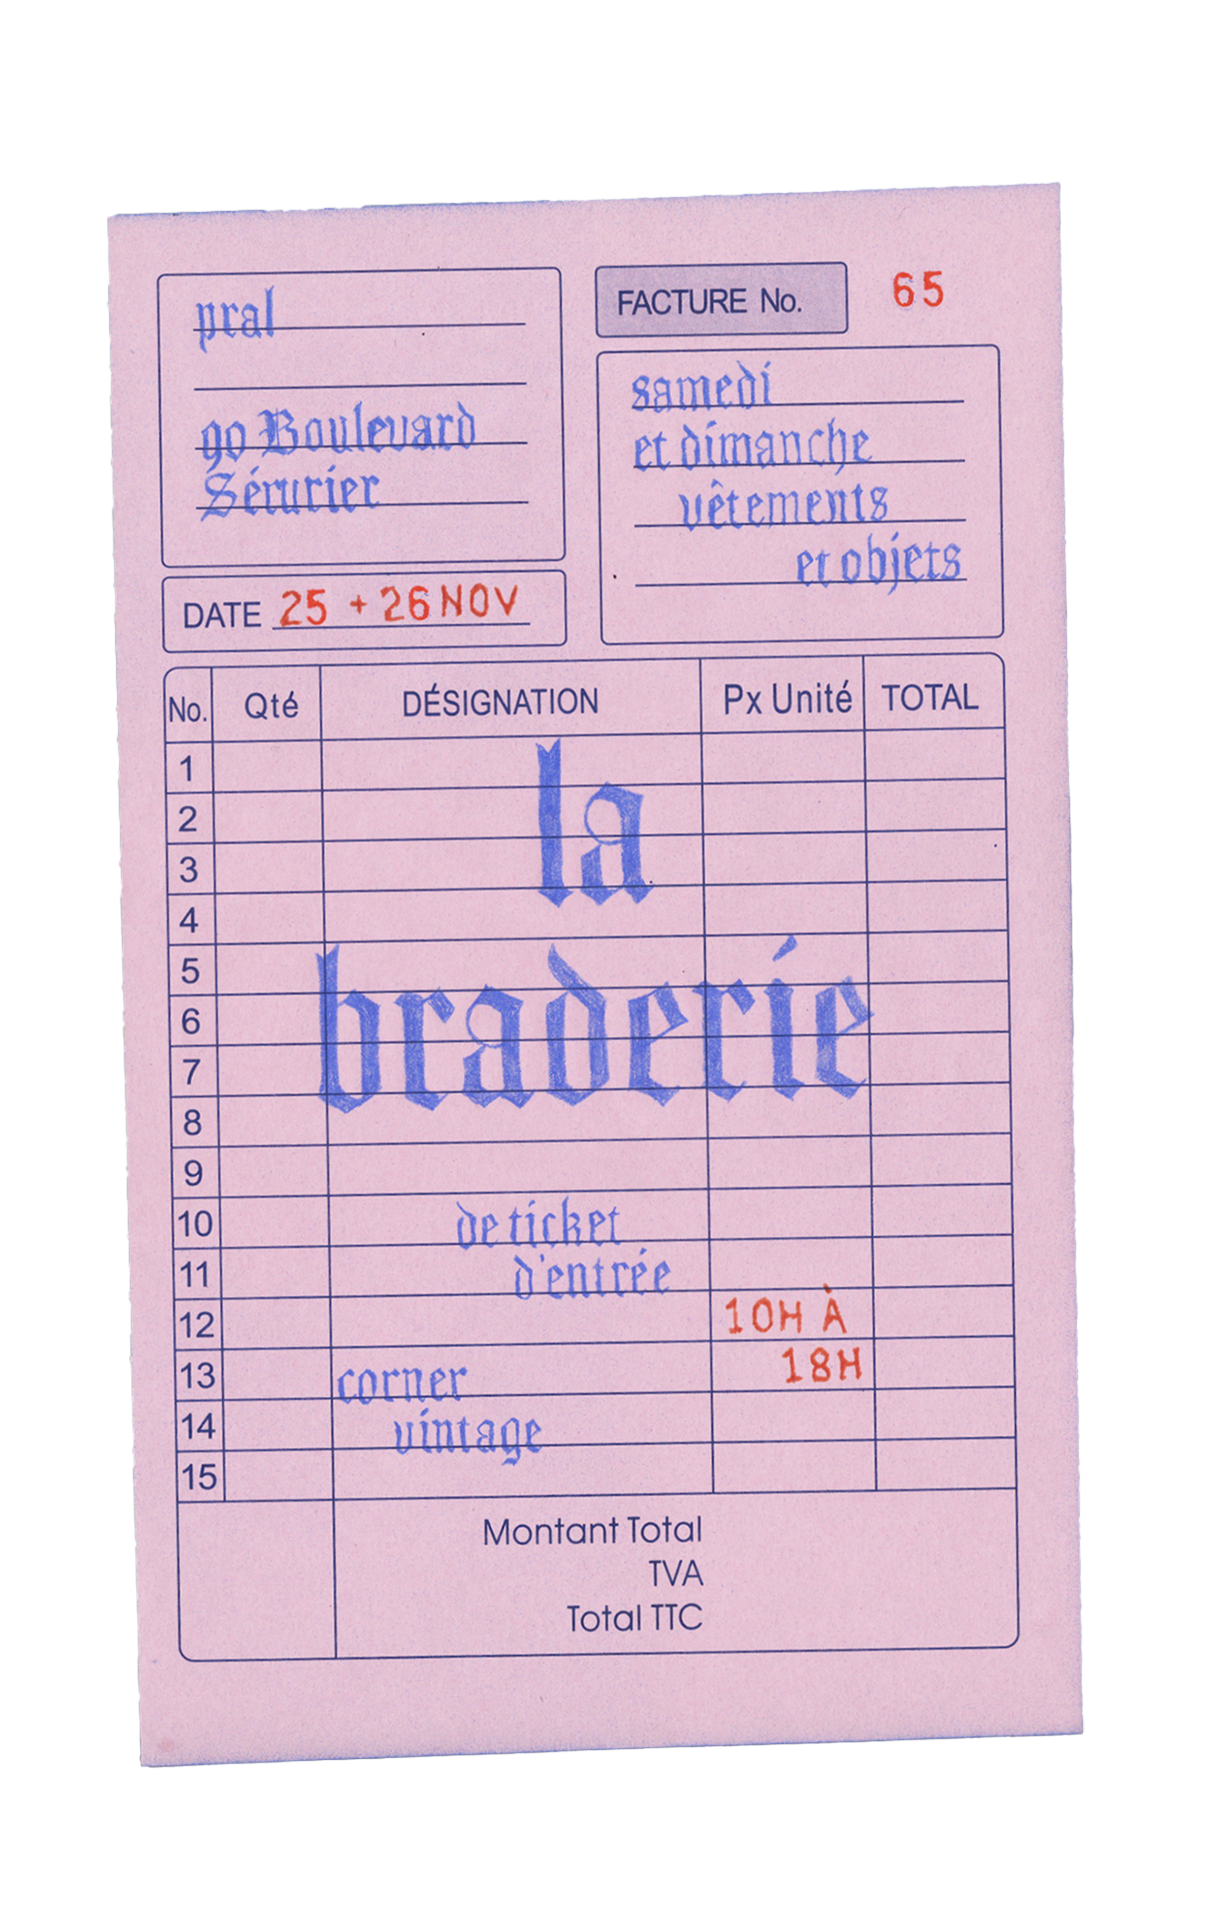 pral
90 Boulevard
Sérurier
FACTURE No. 65
samedi
et dimanche
vêtements
et objets
DATE 25 + 26 NOV
No. Qté DÉSIGNATION Px Unité TOTAL
1
2
3
4
la
5
6
7
8
braderie
9
10 de ticket
11 d'entrée
12 10H À
18H
13 corner
14 vintage
15
Montant Total
TVA
Total TTC